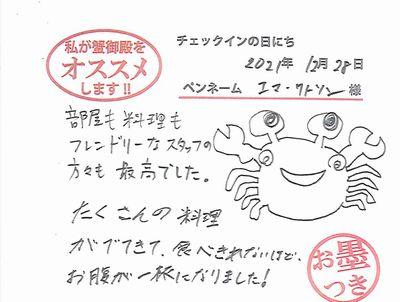 私が蟹御殿を
オススメ
します!!
チェックインの日にち
2021年 12月 28日
ペンネーム エマ・ワトソン 様
部屋も料理も
フレンドリーなスタッフの
方々も 最高でした。
たくさんの料理
がでてきて、食べきれないほど、
お腹が一杯になりました!
お墨
つき